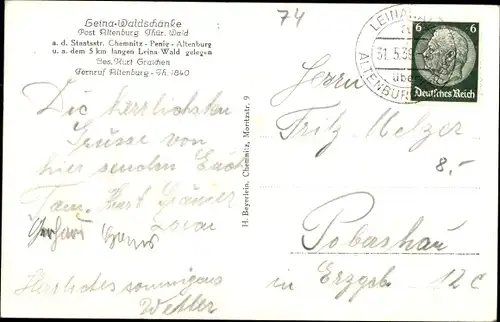 Leina-Waldschänke
Post Altenburg Thür. Wald
a. d. Staatsstr. Chemnitz - Penig - Altenburg
u. a. dem 5 km langen Leina-Wald gelegen
Bes. Kurt Graichen
Fernruf Altenburg - Th. 1840
74
31.5.39
über
ALTENBURG
6 6
Deutsches Reich
Die herrlichsten
Grüsse von
hier senden Euch
Fam. Kurt
Gerhard
Herrliches sonniges
Wetter
H. Beyerlein, Chemnitz, Moritzstr. 9
Herrn
Fritz Melzer
8,-
Pobershau
in Erzgeb. 12c